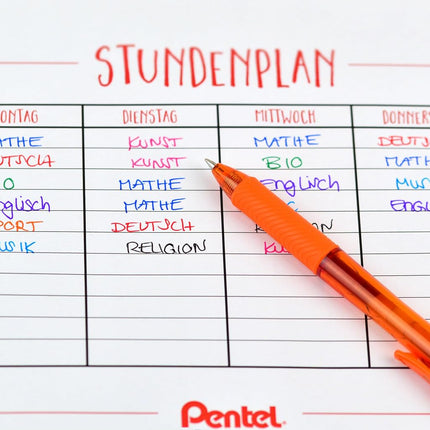 STUNDENPLAN
ONTAG DIENSTAG MITTWOCH DONNER
ATHE KUNST MATHE DEUTS
UTSCH KUNST BIO MATH
O MATHE Englisch MU
nglisch MATHE ENGL
PORT DEUTSCH
USIK RELIGION KU
Pentel